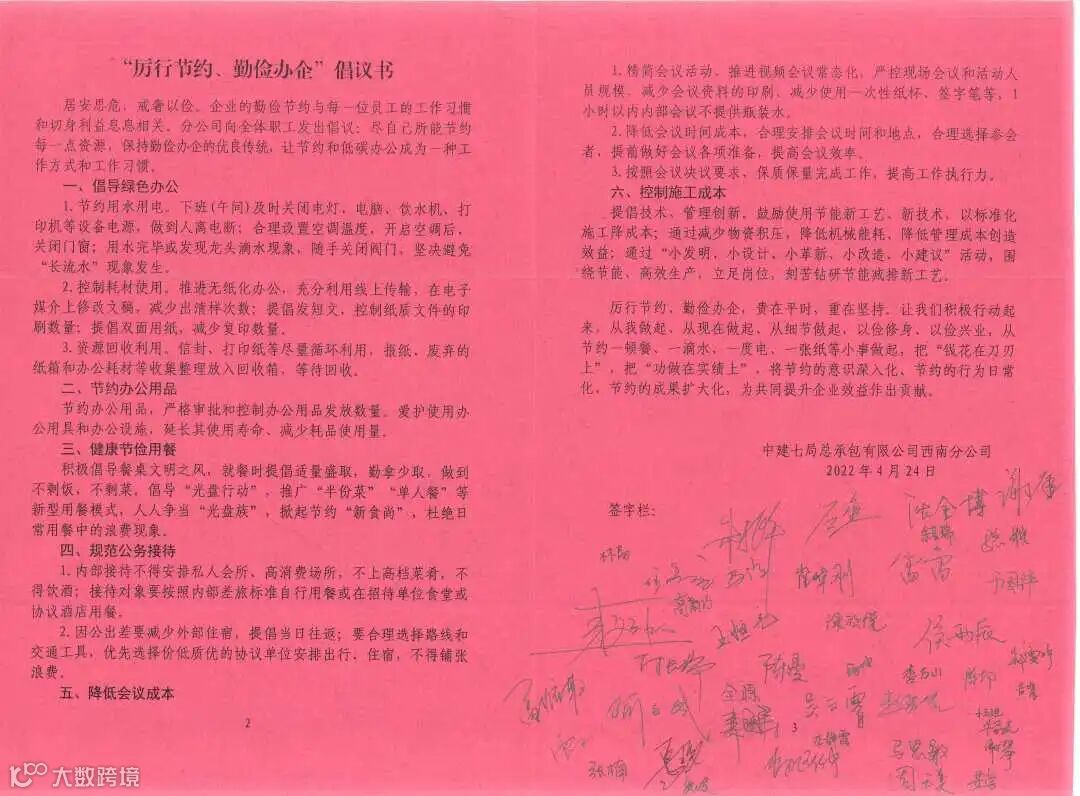 “厉行节约、勤俭办企”倡议书
居安思危，戒奢以俭。企业的勤俭节约与每一位员工的工作习惯
和切身利益息息相关。分公司向全体职工发出倡议：尽自己所能节约
每一点资源，保持勤俭办企的优良传统，让节约和低碳办公成为一种工
作方式和工作习惯。
一、倡导绿色办公
1.节约用水用电。下班(午间)及时关闭电灯、电脑、饮水机、打
印机等设备电源，做到人离电断；合理设置空调温度，开启空调后，
关闭门窗；用水完毕或发现龙头滴水现象，随手关闭阀门，坚决避免
“长流水”现象发生。
2.控制耗材使用。推进无纸化办公，充分利用线上传输，在电子
媒介上修改文稿，减少出清样次数；提倡发短文，控制纸质文件的印
刷数量；提倡双面用纸，减少复印数量。
3.资源回收利用。信封、打印纸等尽量循环利用，报纸、废弃的
纸箱和办公耗材等收集整理放入回收箱，等待回收。
二、节约办公用品
节约办公用品，严格审批和控制办公用品发放数量。爱护使用办
公用具和办公设施，延长其使用寿命、减少耗品使用量。
三、健康节俭用餐
积极倡导餐桌文明之风，就餐时提倡适量盛取，勤拿少取，做到
不剩饭，不剩菜。倡导“光盘行动”，推广“半份菜”“单人餐”等
新型用餐模式，人人争当“光盘族”，掀起节约“新食尚”，杜绝日
常用餐中的浪费现象。
四、规范公务接待
1.内部接待不得安排私人会所、高消费场所，不上高档菜肴，不
得饮酒；接待对象要按照内部差旅标准自行用餐或在招待单位食堂或
协议酒店用餐。
2.因公出差要减少外部住宿，提倡当日往返；要合理选择路线和
交通工具，优先选择价低质优的协议单位安排出行、住宿，不得铺张
浪费。
五、降低会议成本
2
1.精简会议活动。推进视频会议常态化，严控现场会议和活动人
员规模。减少会议资料的印刷、减少使用一次性纸杯、签字笔等，1
小时以内内部会议不提供瓶装水。
2.降低会议时间成本，合理安排会议时间和地点，合理选择参会
者，提前做好会议各项准备，提高会议效率。
3.按照会议决议要求、保质保量完成工作，提高工作执行力。
六、控制施工成本
提倡技术、管理创新，鼓励使用节能新工艺、新技术，以标准化
施工降成本；通过减少物资积压，降低机械能耗、降低管理成本创造
效益；通过“小发明、小设计、小革新、小改造、小建议”活动，围
绕节能、高效生产，立足岗位，刻苦钻研节能减排新工艺。
厉行节约、勤俭办企，贵在平时，重在坚持。让我们积极行动起
来，从我做起、从现在做起、从细节做起，以俭修身、以俭兴业，从
节约一顿餐、一滴水、一度电、一张纸等小事做起，把“钱花在刀刃
上”，把“功做在实绩上”，将节约的意识深入化、节约的行为日常
化、节约的成果扩大化，为共同提升企业效益作出贡献。
中建七局总承包有限公司西南分公司
2022年4月24日
签字栏：
陈曼
张楠
3
大数跨境